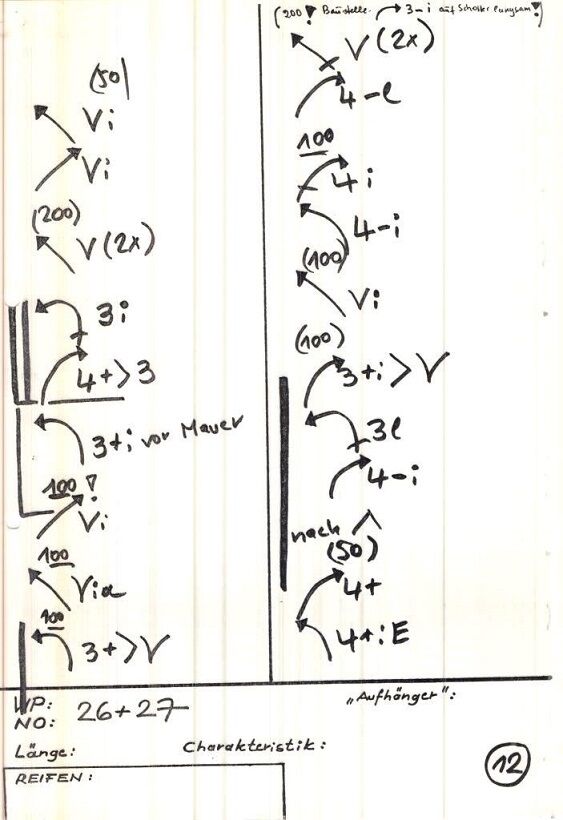 (50)
Vi
Vi
(200)
V (2x)
3i
4+>3
3+i vor Mauer
100 !
Vi
100
Via
100
3+>V
(200 ! Baustelle. 3-i auf Schotter langsam!)
V (2x)
4-l
100
4i
4-i
(100)
Vi
(100)
3+i>V
3l
4-i
nach
(50)
4+
4+iE
WP:
NO: 26+27
„Aufhänger":
Länge:
Charakteristik:
REIFEN:
12